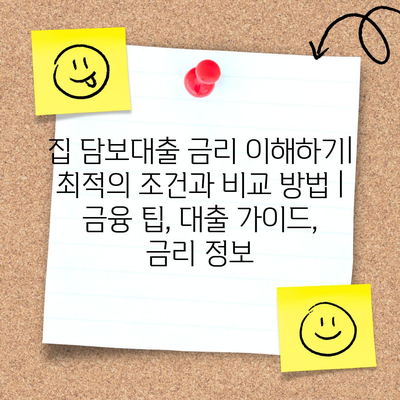 집 담보대출 금리 이해하기|
최적의 조건과 비교 방법 |
금융 팁, 대출 가이드,
금리 정보